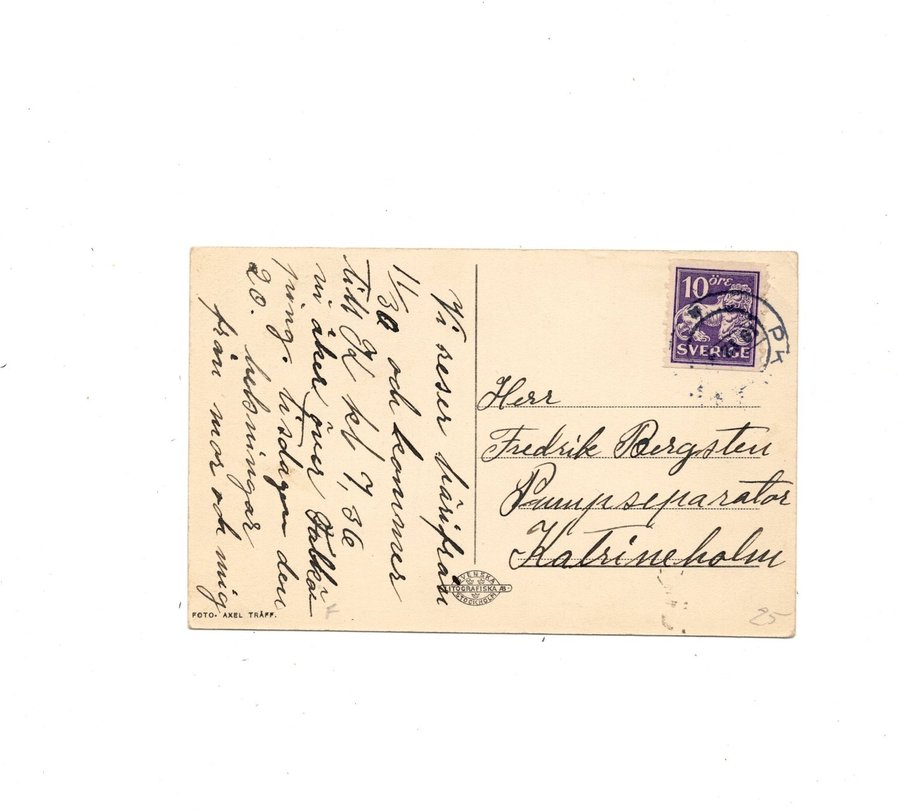 Vi reser härifrån
11/30 och kommer
till K kl 7,36
vi åker över
ping. tisdagen den
20. helsningar
från mor och mig
FOTO- AXEL TRÄFF.
SVENSKA
LITOGRAFISKA AB
STOCKHOLM
10 öre
SVERIGE
Herr
Fredrik Bergsten
Pumpseparator
Katrineholm
25